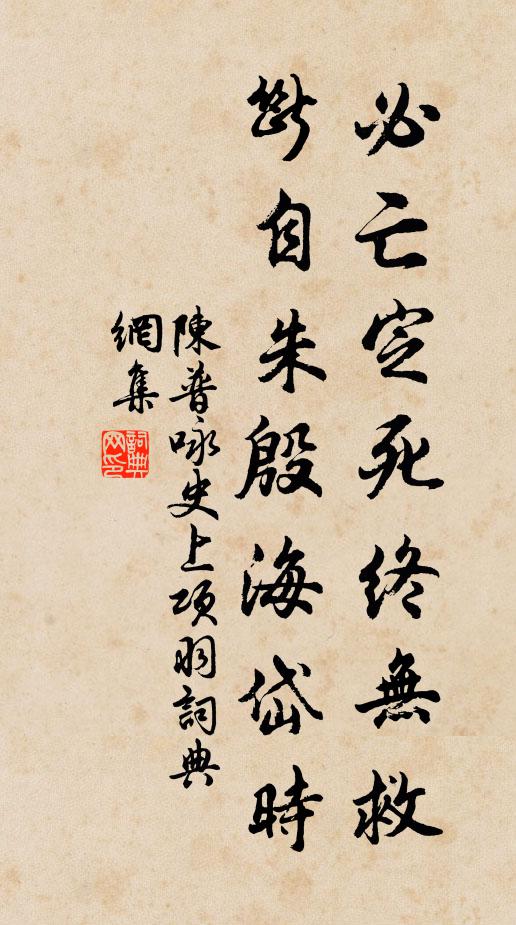 必亡定死終無救
斷自朱殷海岱時
陳普咏史上項羽詞典
網集
詞典网印